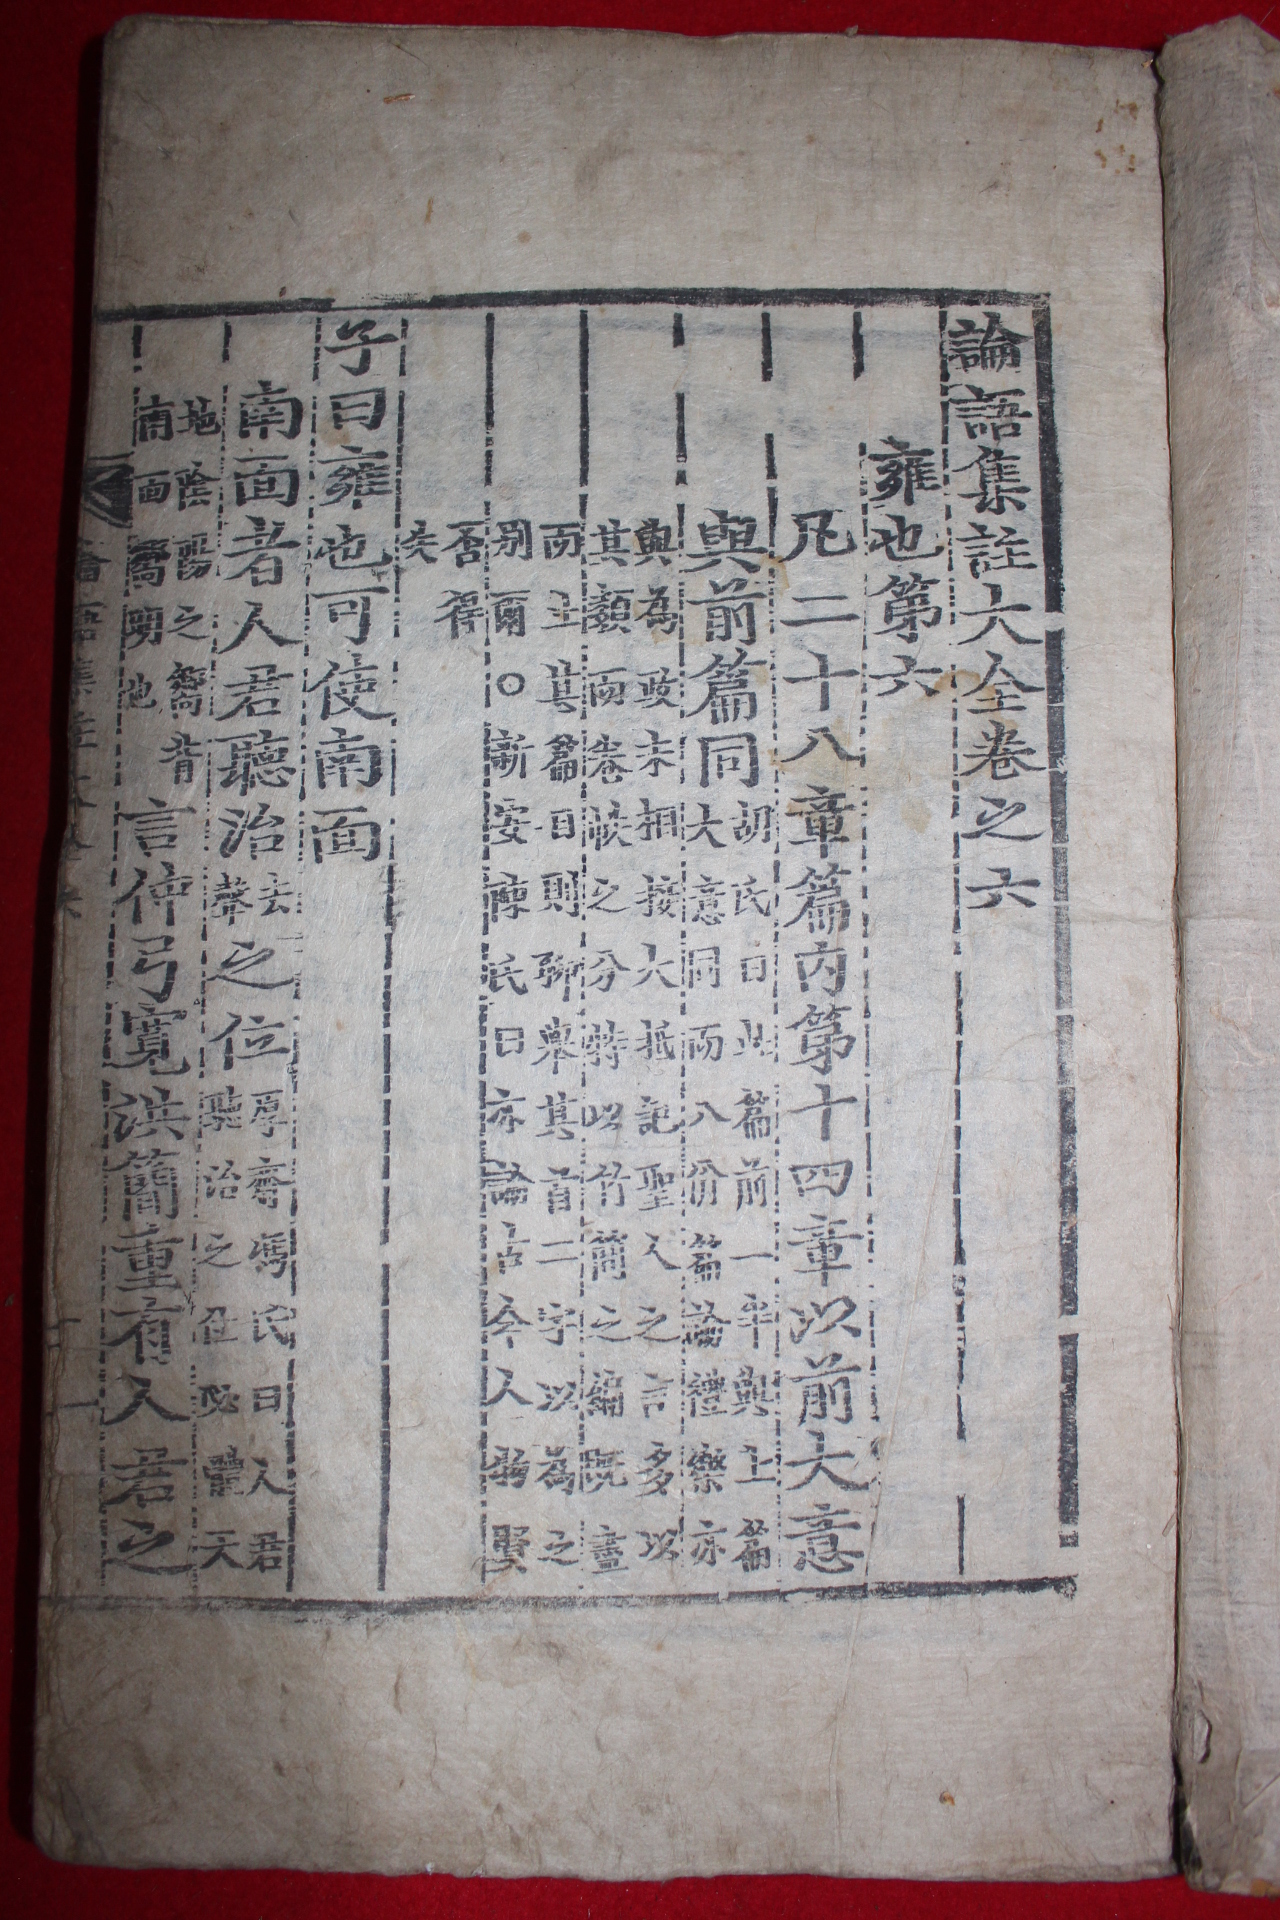 論語集註大全卷之六
雍也第六
凡二十八章篇內第十四章以前大意
與前篇同胡氏曰此篇前一半與上篇
大意同而八佾篇論禮樂亦
與為政末相接大抵記聖人之言多以
其類而卷帙之分特以竹簡之編既盡
而止其篇目則聊舉其首二字以為之
別爾○新安陳氏曰亦論古今人賢
否得
失
子曰雍也可使南面
南面者人君聽治去聲之位厚齋馮氏曰人君
聽治之位必體天
地陰陽之嚮背
南面嚮明也
言仲弓寬洪簡重有人君之
論語集註